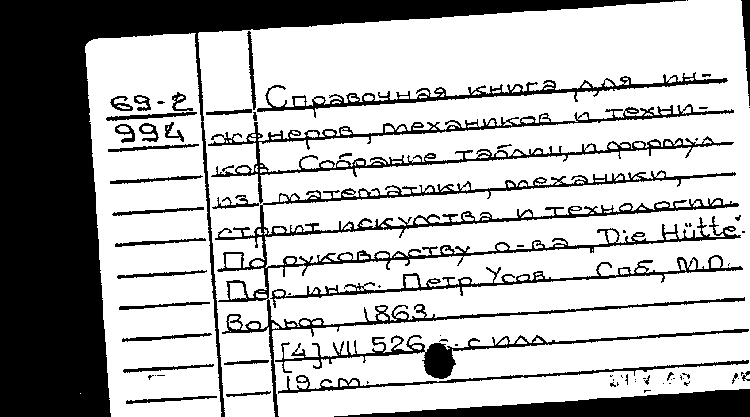 69-2
994
Справочная книга для ин-
женеров, механиков и техни-
ков. Собрание таблиц и формул
из математики, механики,
строит. искусства и технологии.
По руководству о-ва „Die Hütte".
Пер. инж. Петр Усов. Спб., М.О.
Вольф, 1863.
[4], VII, 526 с. с илл.
19 см.